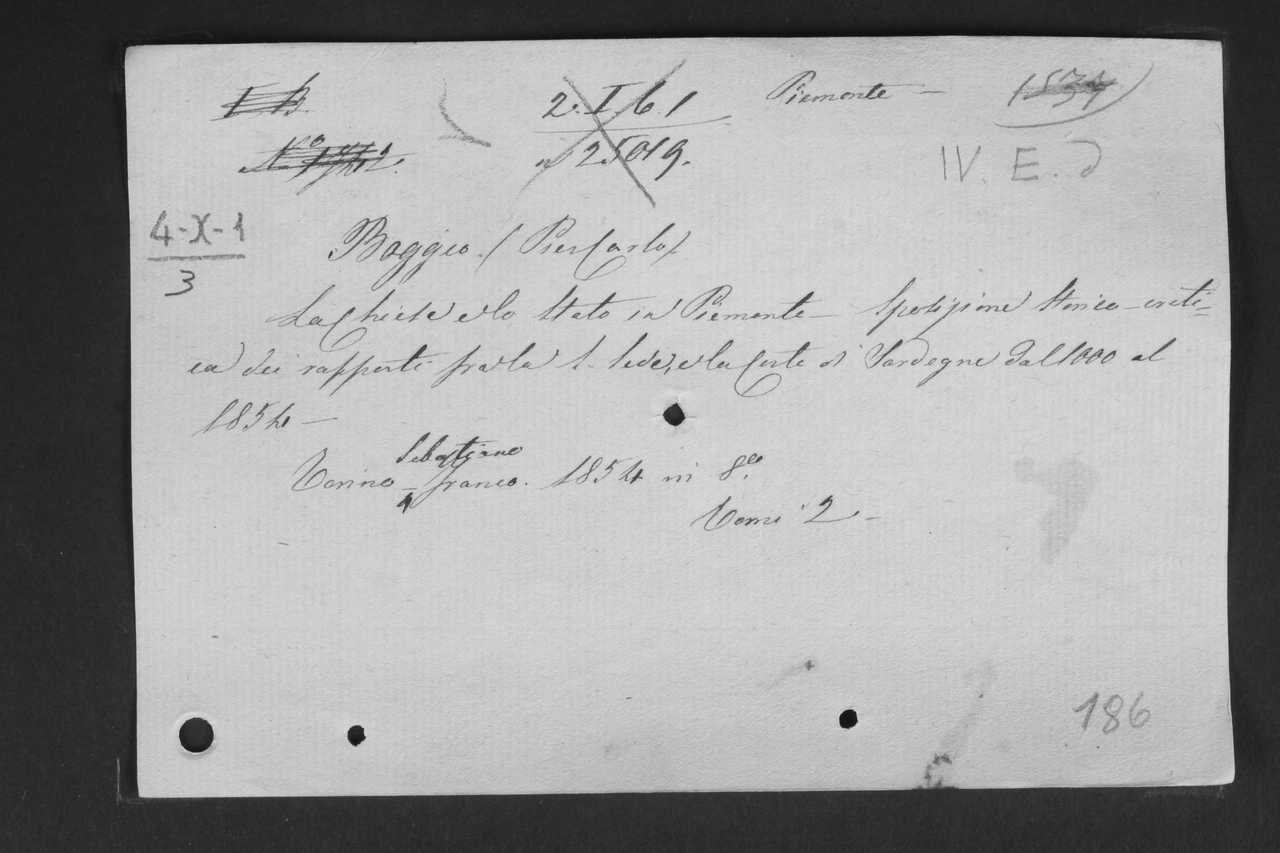 I B. 2. I 61 Piemonte – 1537
Nº 1912. n 25019. IV. E. d
4-X-1
3
Boggio. (PierCarlo).
La Chiesa e lo Stato in Piemonte – Sposizione storico-criti=
ca dei rapporti fra la S. Sede, e la Corte di Sardegna dal 1000 al
1854 –
Sebastiano
Torino – franco. 1854 in 8º.
Tomi 2 –
186